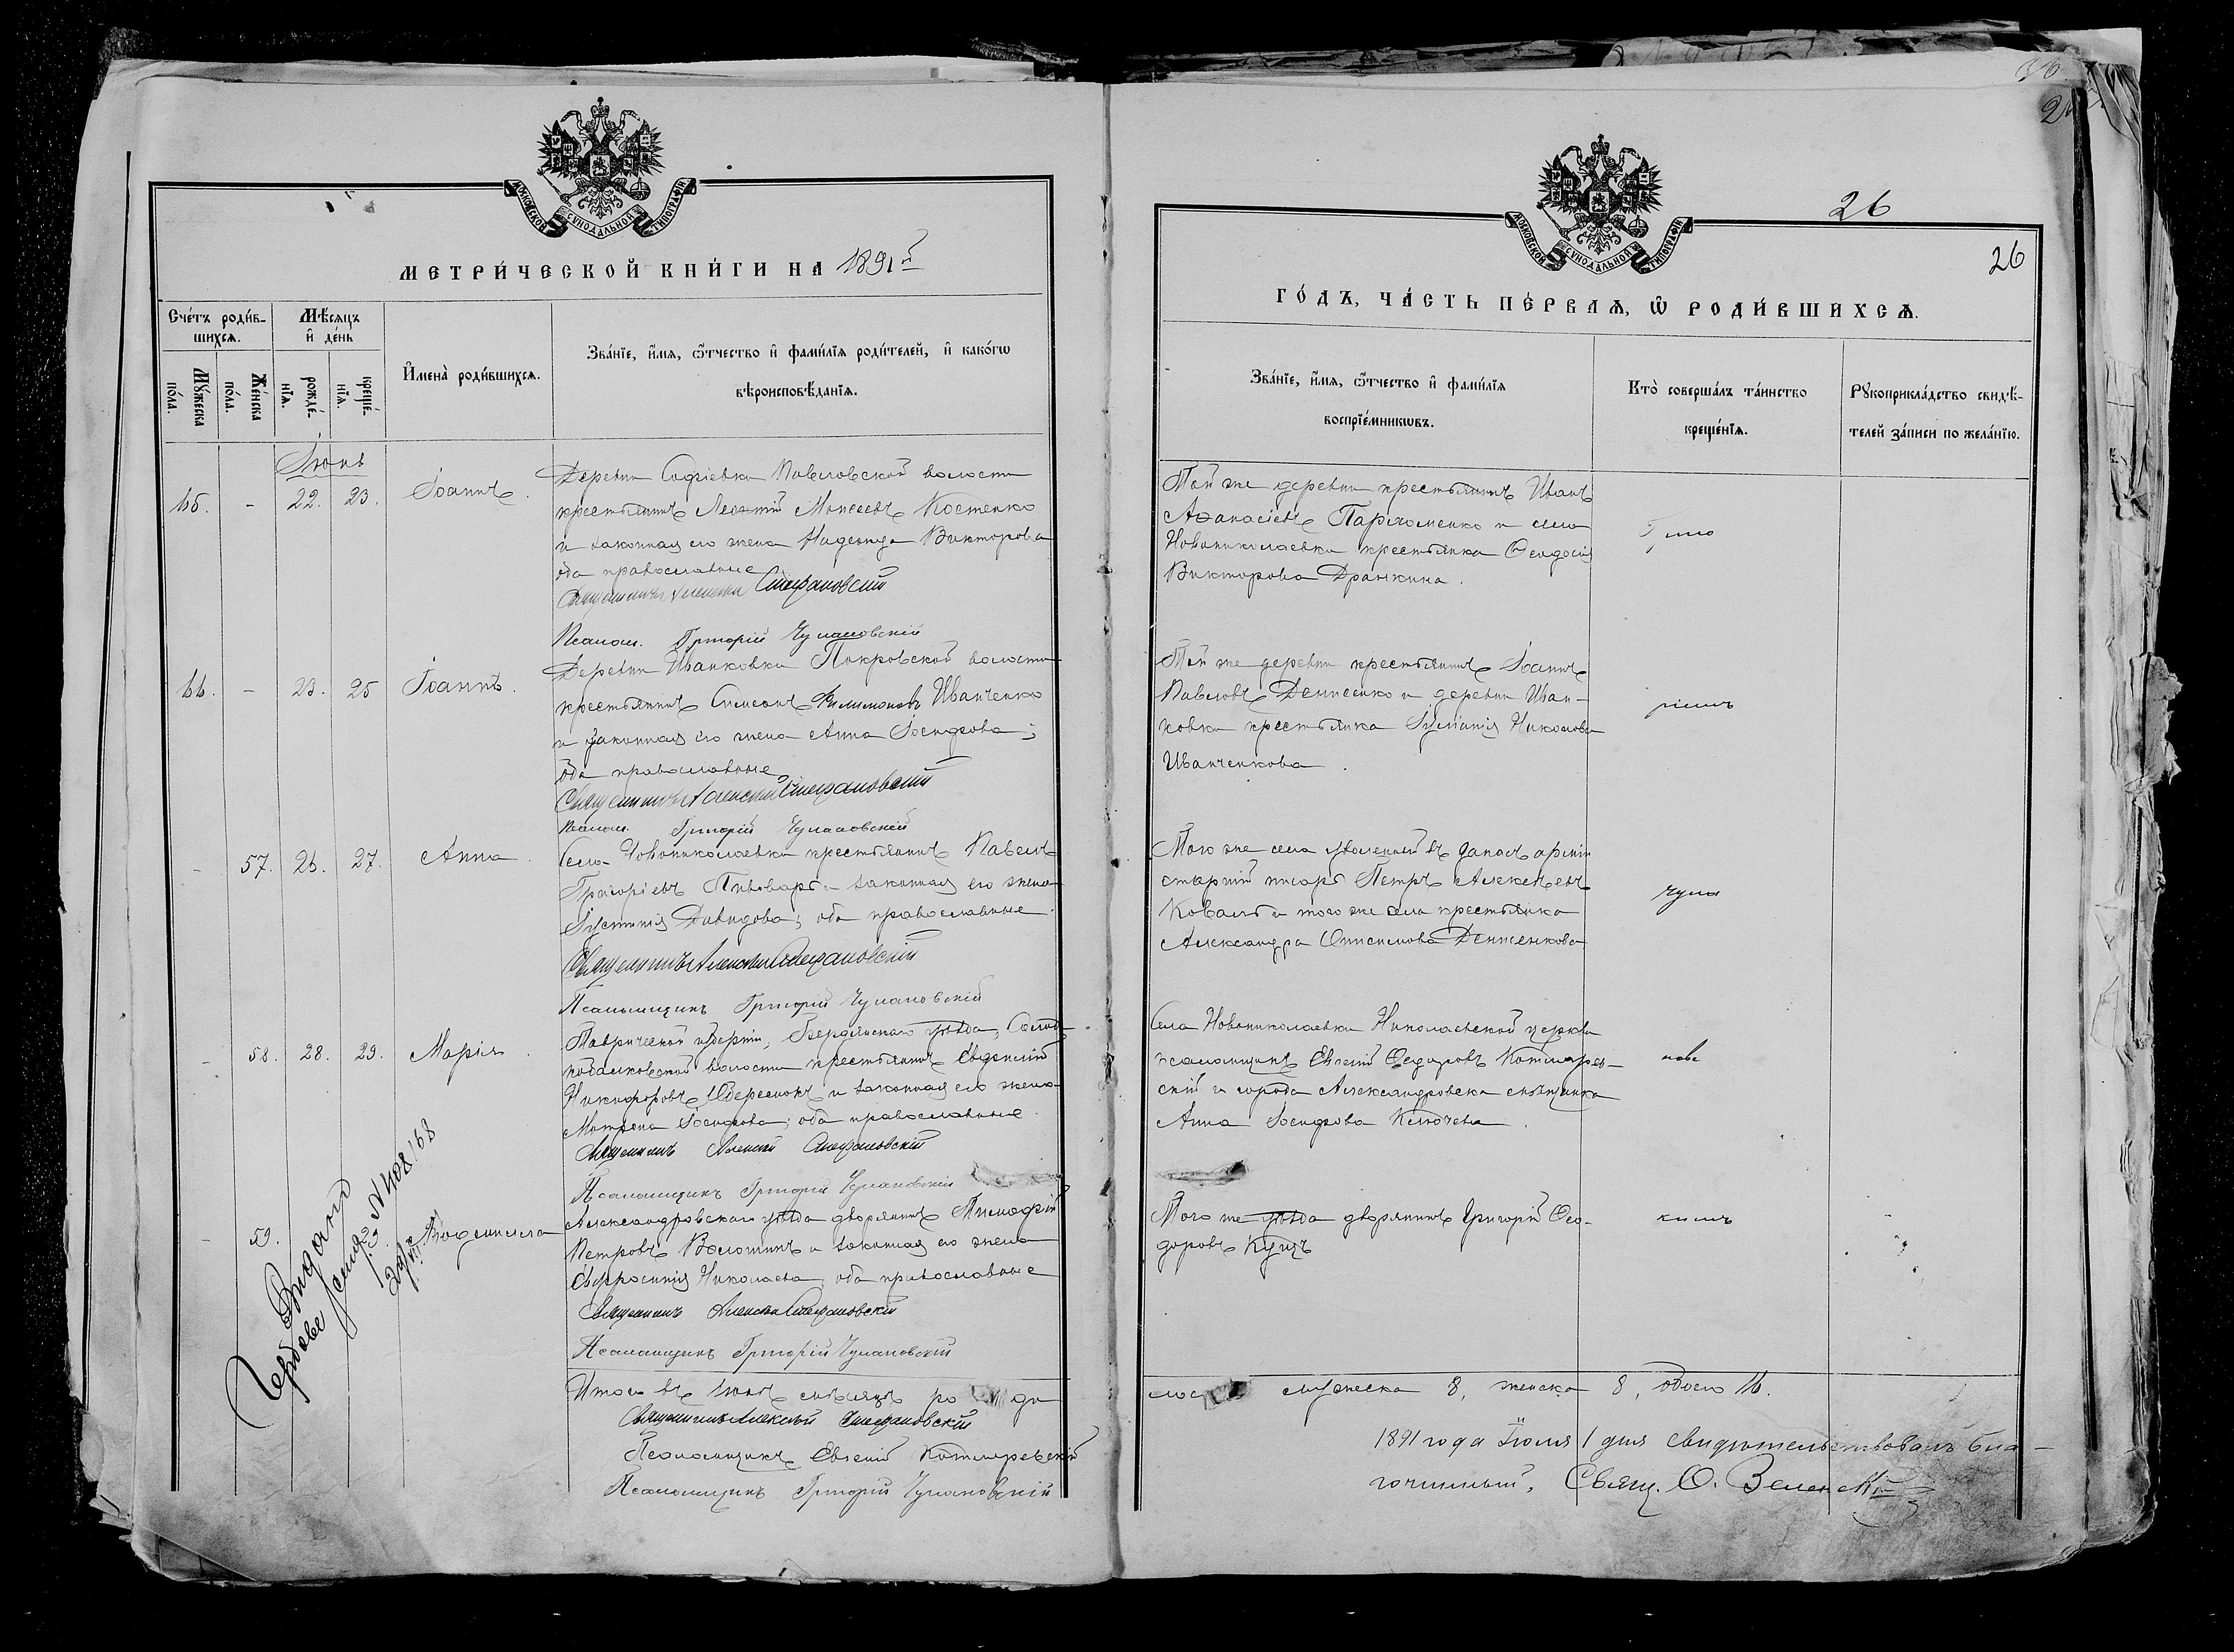 МЕТРИ́ЧЕСКОЙ КНИ́ГИ НА 1891й
Сче́тъ роди́в-
шихсѧ.
Мѣ́сѧцъ
и҆ де́нь
Мꙋ́жеска
по́ла.
Же́нска
по́ла.
рожде́-
нїѧ.
креще́-
нїѧ.
И҆мена̀ роди́вшихсѧ.
Зва́нїе, и҆́мѧ, ѻ҆́тчество и҆ фами́лїѧ роди́телей, и҆ како́гѡ
вѣроисповѣ́данїѧ.
Іюнь
65. - 22. 23. Іоаннъ.
Деревни Софіевки Павловской волости
крестьянинъ Леонтій Моисеевъ Костенко
и законная его жена Надежда Викторова
оба православные
Священникъ Алексій Стефановскій
Псалом. Григорій Чулановскій
66. - 23. 25 Іоаннъ.
Деревни Иванковки Покровской волости
крестьянинъ Симеонъ Филимоновъ Иванченко
и законная его жена Анна Іосифова;
оба православные
Священникъ Алексій Стефановскій
Псалом. Григорій Чулановскій
- 57. 26. 27. Анна.
Села Новониколаевки крестьянинъ Павелъ
Григоріевъ Пивоваръ и законная его жена
Іустинія Давидова; оба православные.
Священникъ Алексій Стефановскій
Псаломщикъ Григорій Чулановскій
- 58. 28. 29. Марія.
Таврической губерніи, Бердянскаго уѣзда,
волости крестьянинъ Евдокимъ
Никифоровъ и законная его жена
Матрона Іосифова; оба православные.
Священникъ Алексій Стефановскій
Псаломщикъ Григорій Чулановскій
- 59. 29. Людмилла
Александровскаго уѣзда дворянинъ Тимофей
Петровъ Волошинъ и законная его жена
Евфросинія Николаева, оба православные
Священникъ Алексій Стефановскій
Псаломщикъ Григорій Чулановскій
Выдано
29 № 168
Итого въ Іюнѣ мѣсяцѣ ро ди
Священникъ Алексій Стефановскій
Псаломщикъ Евгеній Котляревскій
Псаломщикъ Григорій Чулановскій
26
26
ГО́ДЪ, ЧА́СТЬ ПЕ́РВАѦ, Ѡ҆ РОДИ́ВШИХСѦ.
Зва́нїе, и҆́мѧ, ѻ҆́тчество и҆ фами́лїѧ
воспрїе́мникѡвъ.
Кто̀ соверша́лъ та́инство
креще́нїѧ.
Рꙋкоприкла́дство свидѣ́-
телей за́писи по жела́нїю.
Той же деревни крестьянинъ Иванъ
Аѳанасіевъ Пархоменко и села
Новониколаевки крестьянка Ѳеодосія
Викторова Дранкина.
Той же деревни крестьянинъ Іоаннъ
Павловъ Денисенко и деревни Иван-
ковки крестьянка Іуліанія Николаева
Иванченкова.
Того же села уволенный въ запасъ арміи
старшій писарь Петръ Алексѣевъ
Коваль и того же села крестьянка
Александра Онисимова Денисенкова
Села Новониколаевки Николаевской церкви
псаломщикъ Евгеній Ѳедоровъ Котлярев-
скій и города Александровска мѣщанка
Анна Іосифова Ключева.
Того же уѣзда дворянинъ Григорій Ѳео-
доровъ Куцъ
лось мужеска 8, женска 8, обоего 16.
1891 года Іюля 1 дня свидѣтельствовалъ бла-
гочинный, Свящ. Ѳ. Зеленскій